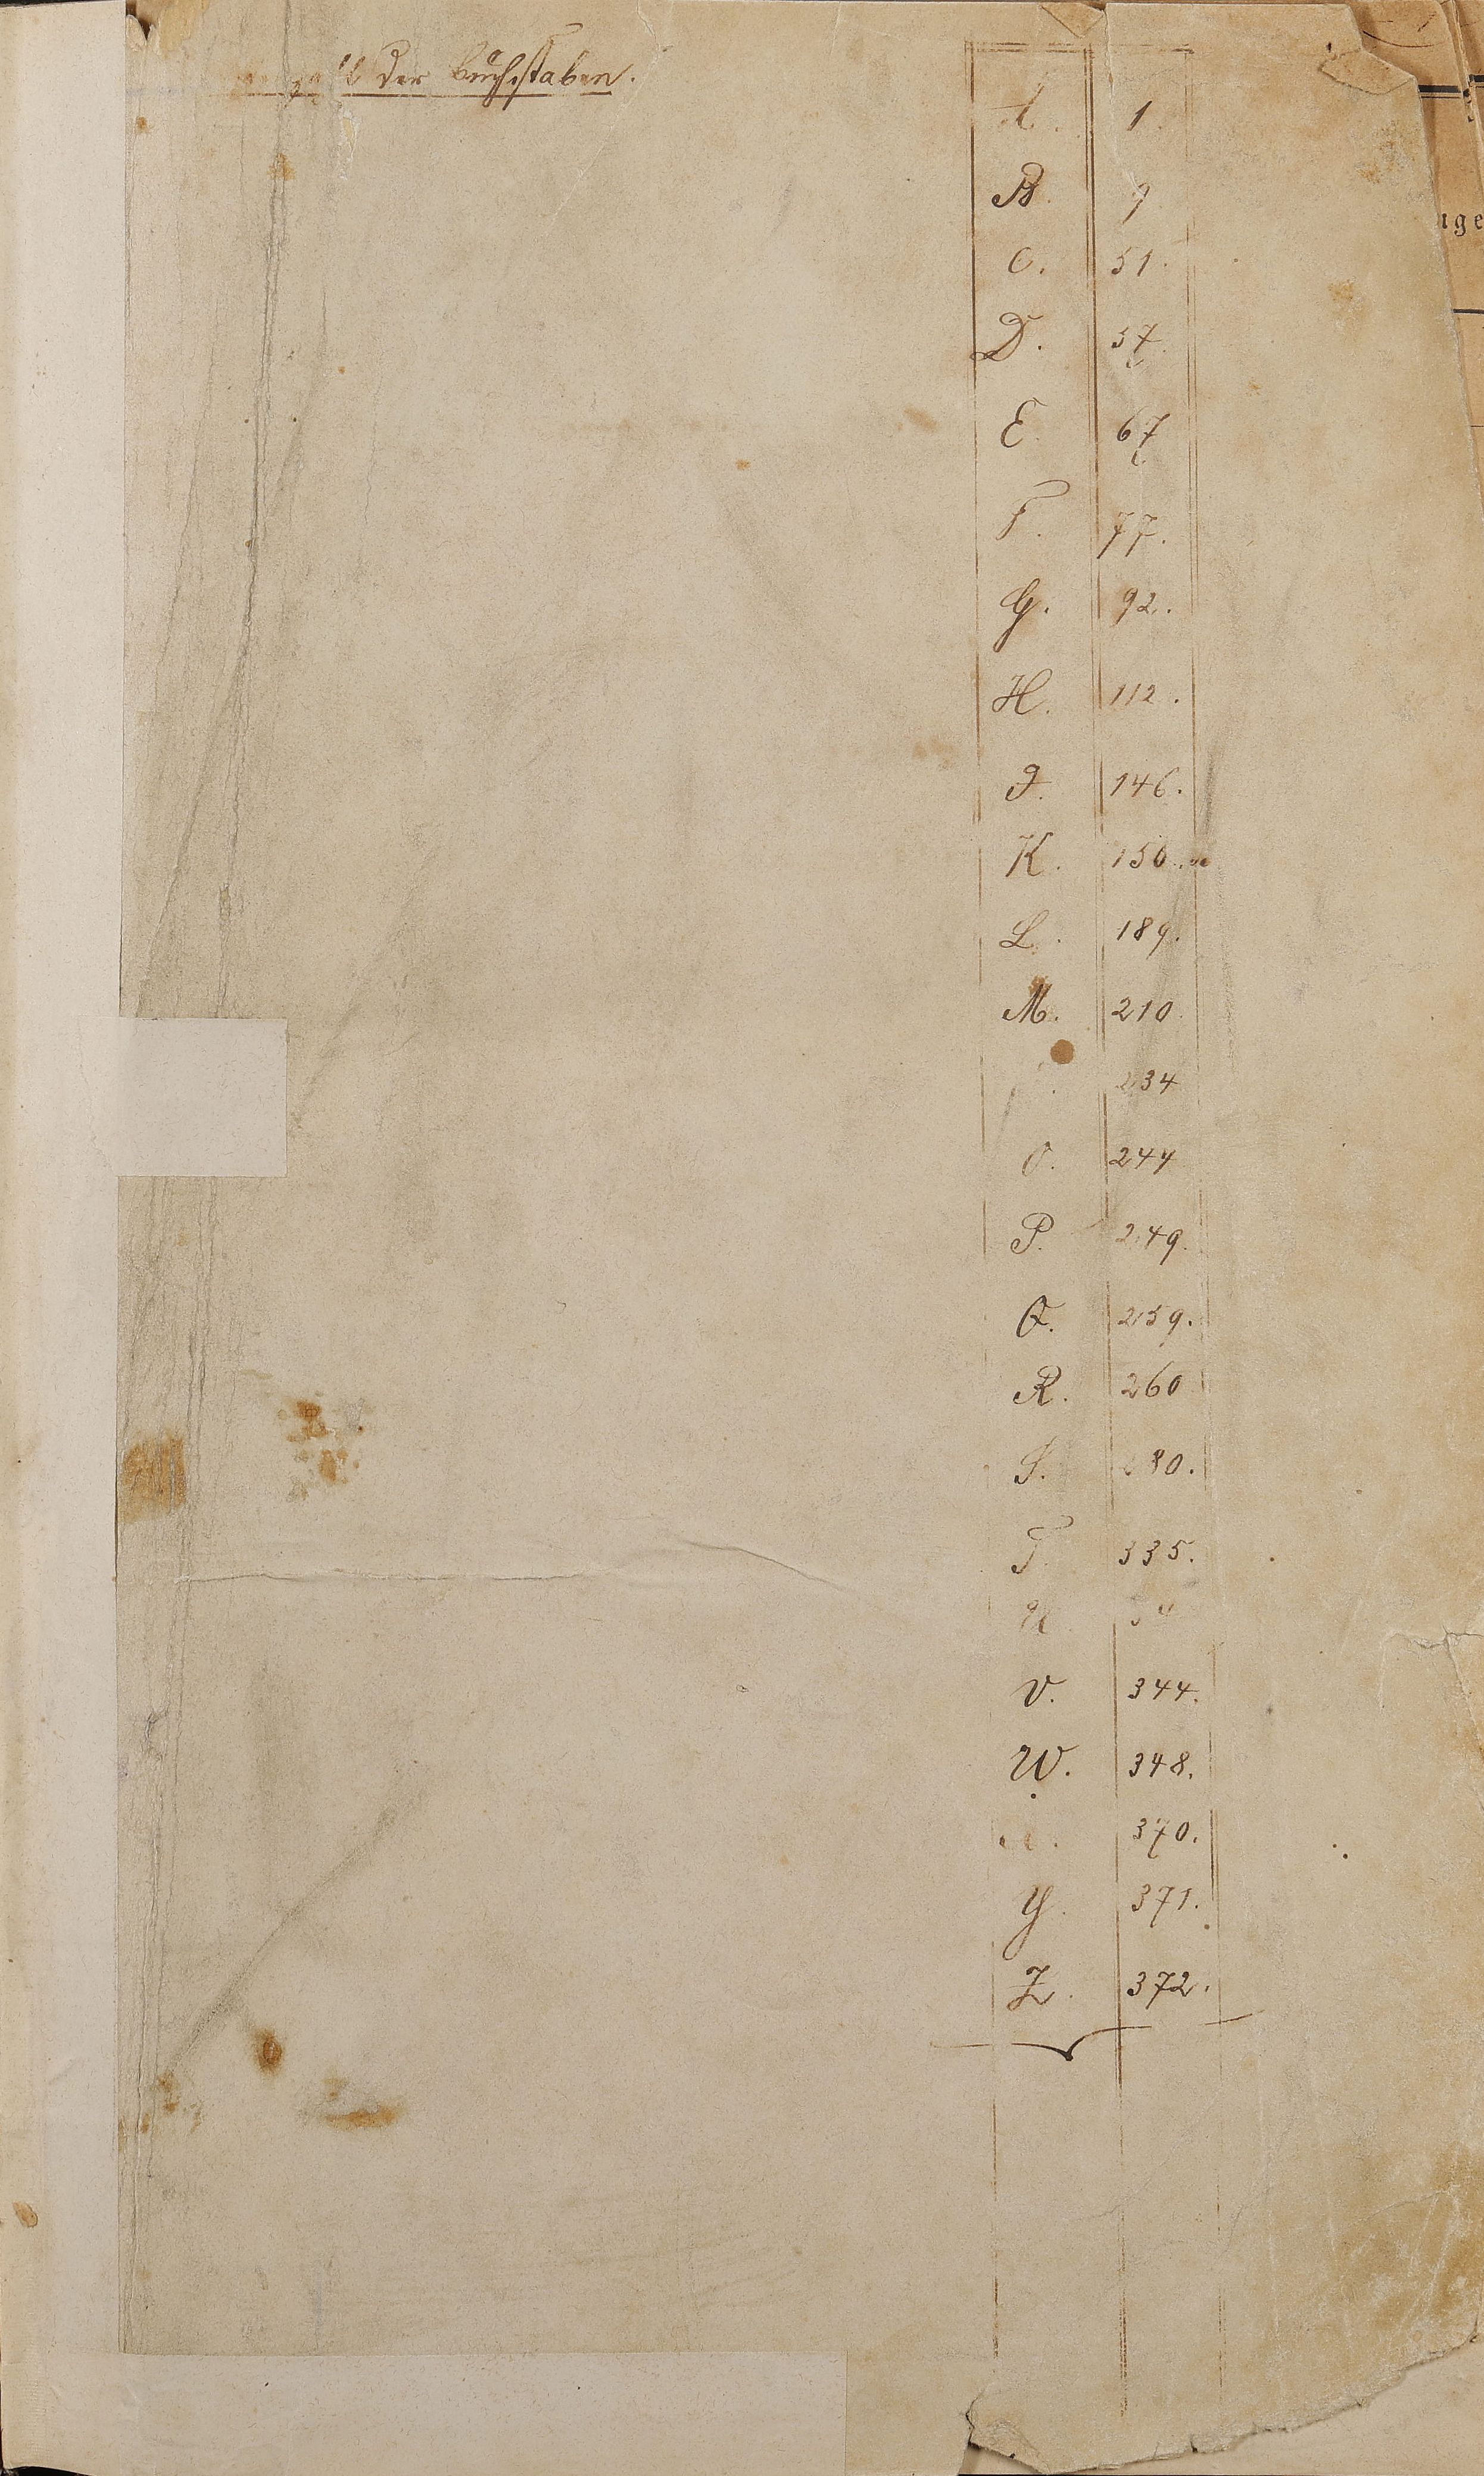 der Buchstaben.
A. 1.
B. 9
C. 51.
D. 57.
E. 67
F. 77.
G. 92.
H. 112.
J. 146.
K. 150.
L. 189.
M. 210.
234
O. 244
P. 249.
Q. 259.
R. 260
S. 280.
T. 335.
U
V. 344.
W. 348.
370.
Y. 371.
Z. 372.